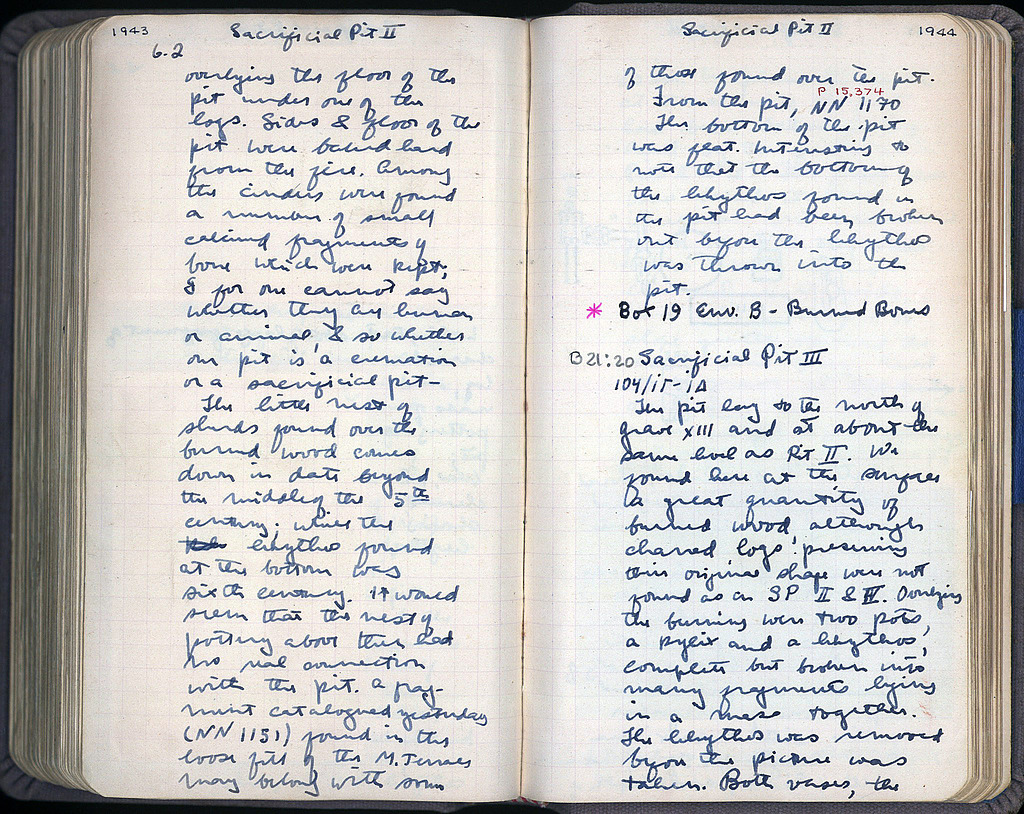 1943
Sacrificial Pit II
6.2
overlying the floor of the
pit under one of the
logs. Sides & floor of the
pit were baked hard
from the fire. Among
the cinders were found
a number of small
calcined fragments of
bone which were kept,
I for one cannot say
whether they are human
or animal & so whether
our pit is a cremation
or a sacrificial pit—
The little nest of
sherds found over the
burned wood comes
down in date beyond
the middle of the 5th
century; while the
lekythos found
at the bottom was
sixth century. It would
seem that the nest of
pottery above then had
no real connection
with the pit. A frag-
ment catalogued yesterday
(NN 1151) found in the
loose fill of the M. Terrace
may belong with some
Sacrificial Pit II
1944
of those found over the pit.
P 15,374
From the pit, NN 1170
The bottom of the pit
was flat. Interesting to
note that the bottom of
the lekythos found in
the pit had been broken
out before the lekythos
was thrown into the
pit.
* Box 19 Env. B - Burned Bones
B 21:20 Sacrificial Pit III
104/ΙΓ-ΙΔ
The pit lay to the north of
grave XIII and at about the
same level as Pit II. We
found here at the surface
a great quantity of
burned wood, although
charred logs preserving
their original shape were not
found as in SP II & IV. Overlying
the burning were two pots,
a kylix and a lekythos,
complete but broken into
many fragments lying
in a mass together.
The lekythos was removed
before the picture was
taken. Both vases, the